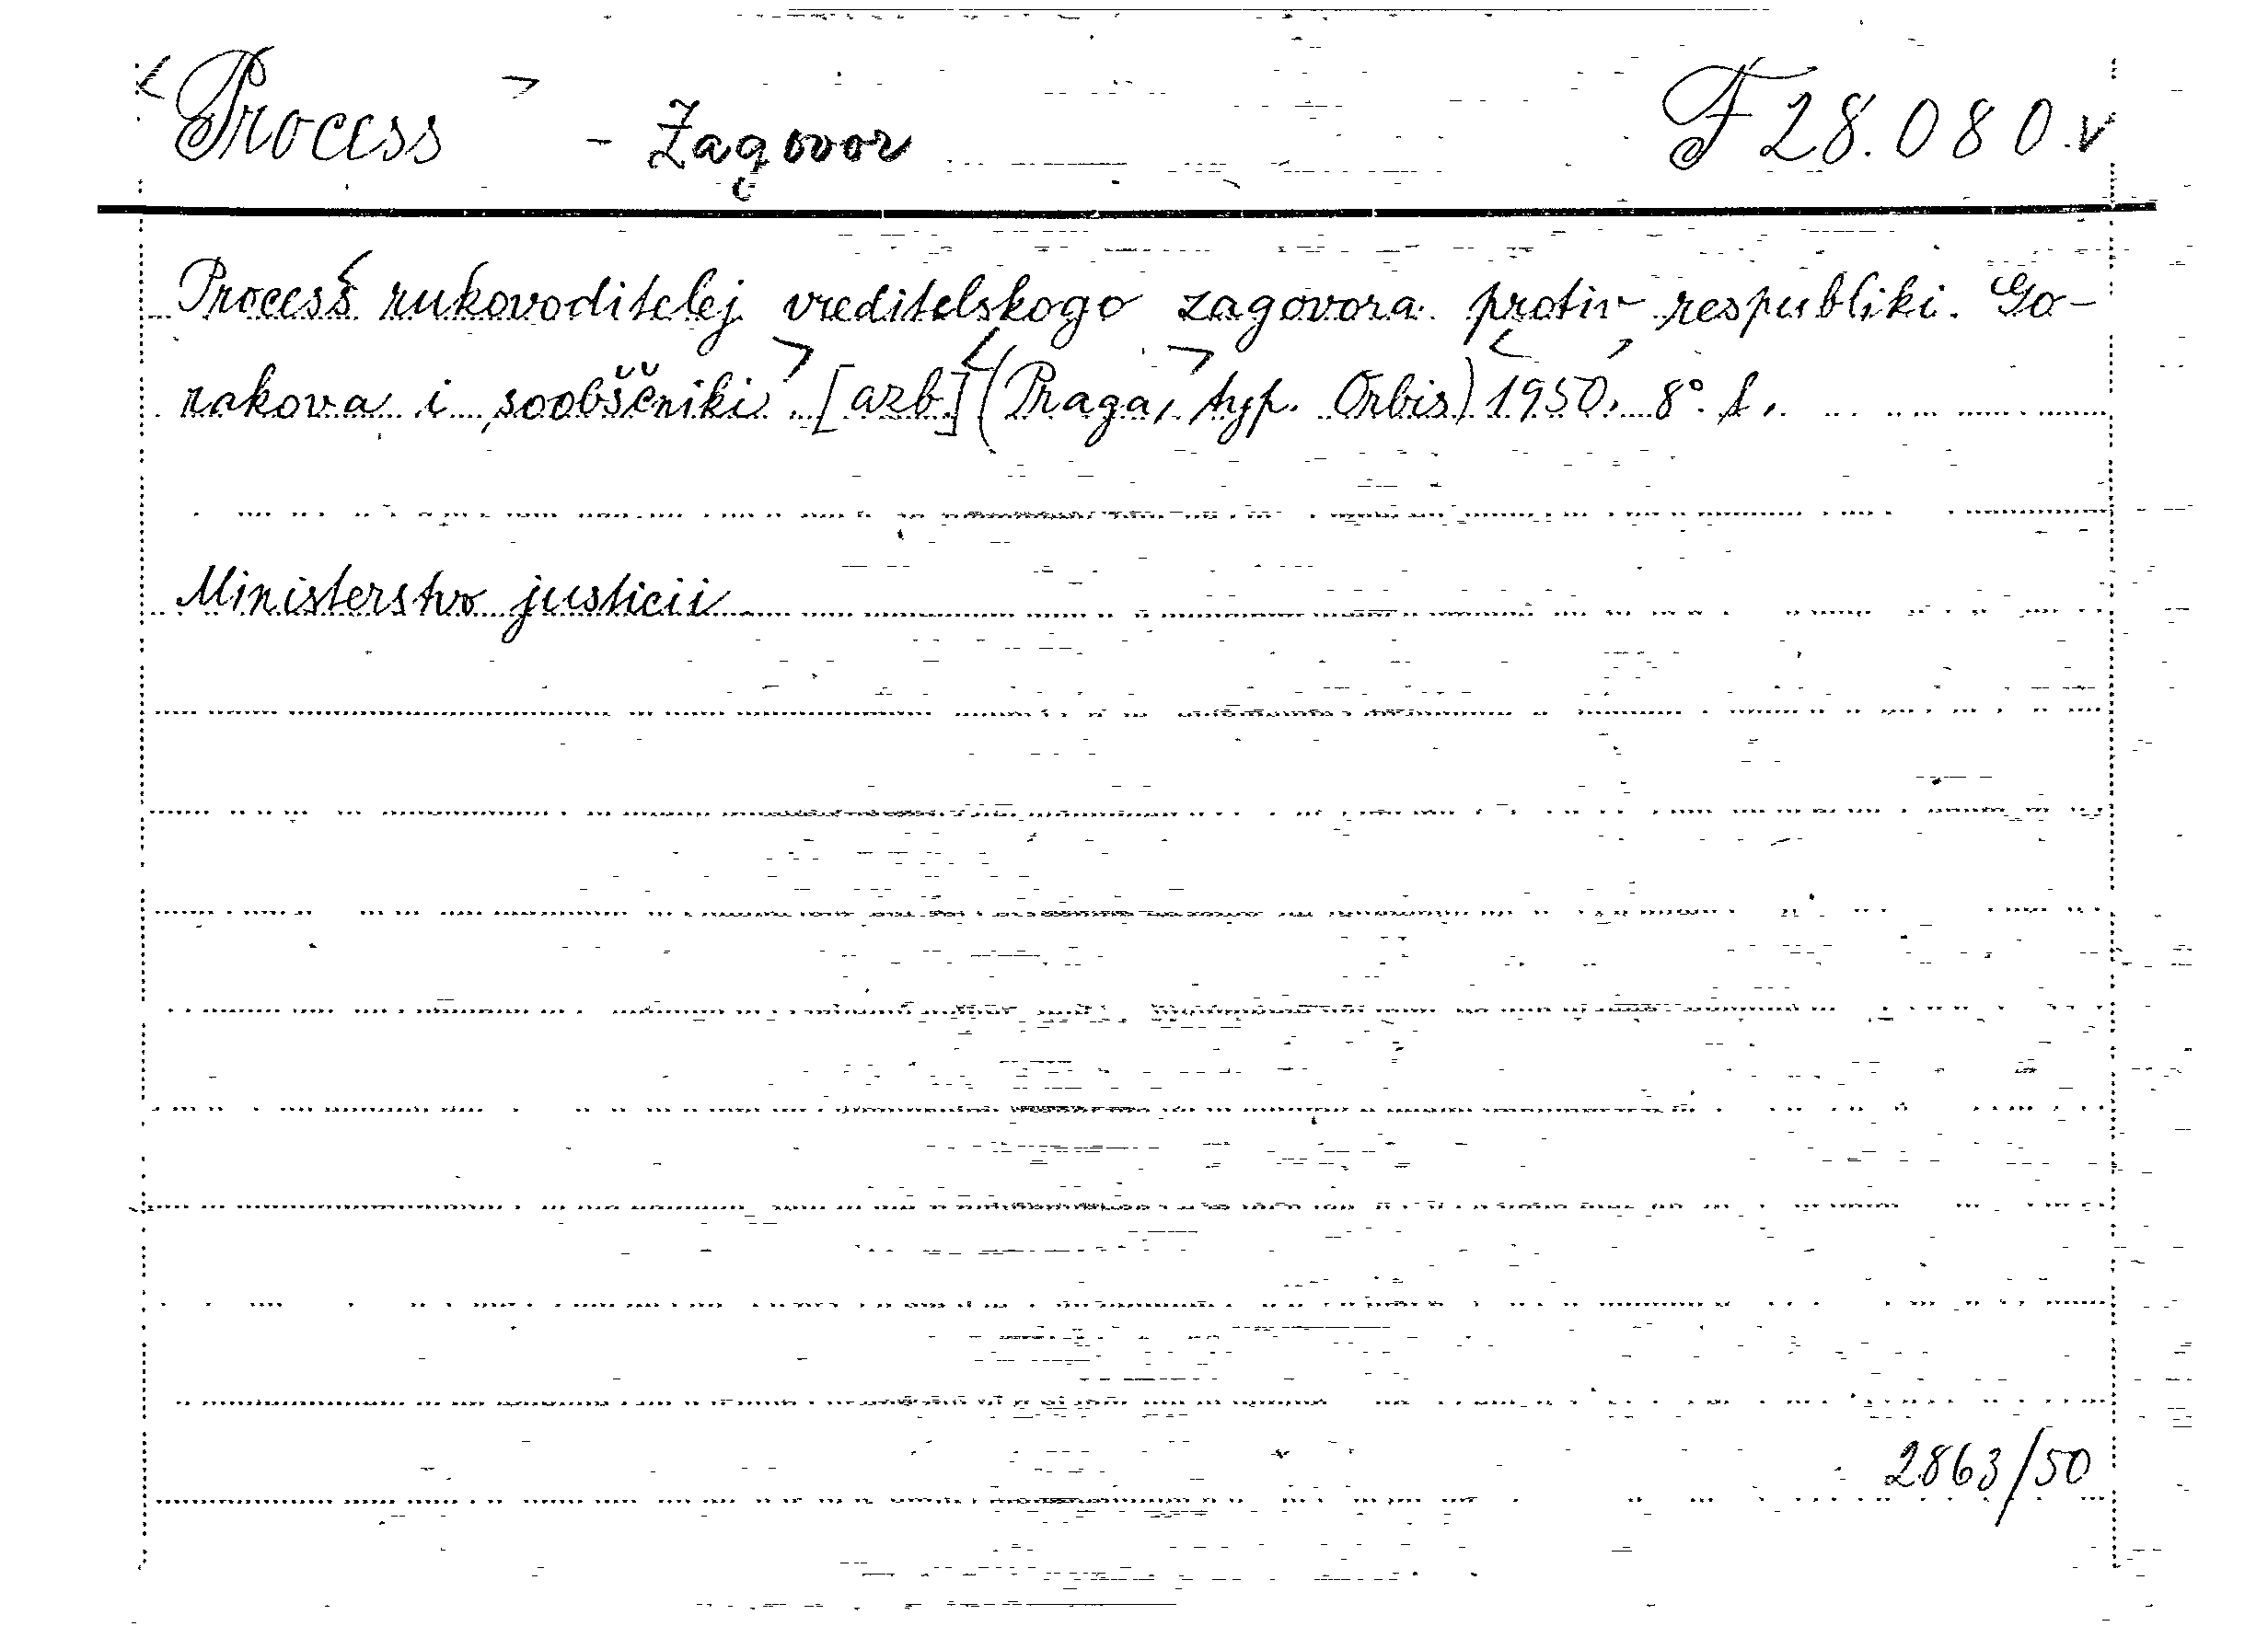 Process - Zagovor F 28.080.v
Process rukovoditelej vreditelskogo zagovora protiv respubliki. Go-
rakova i soobščniki [azb.] (Praga, typ. Orbis) 1950. 8°. f.
Ministerstvo justicii
2863/50